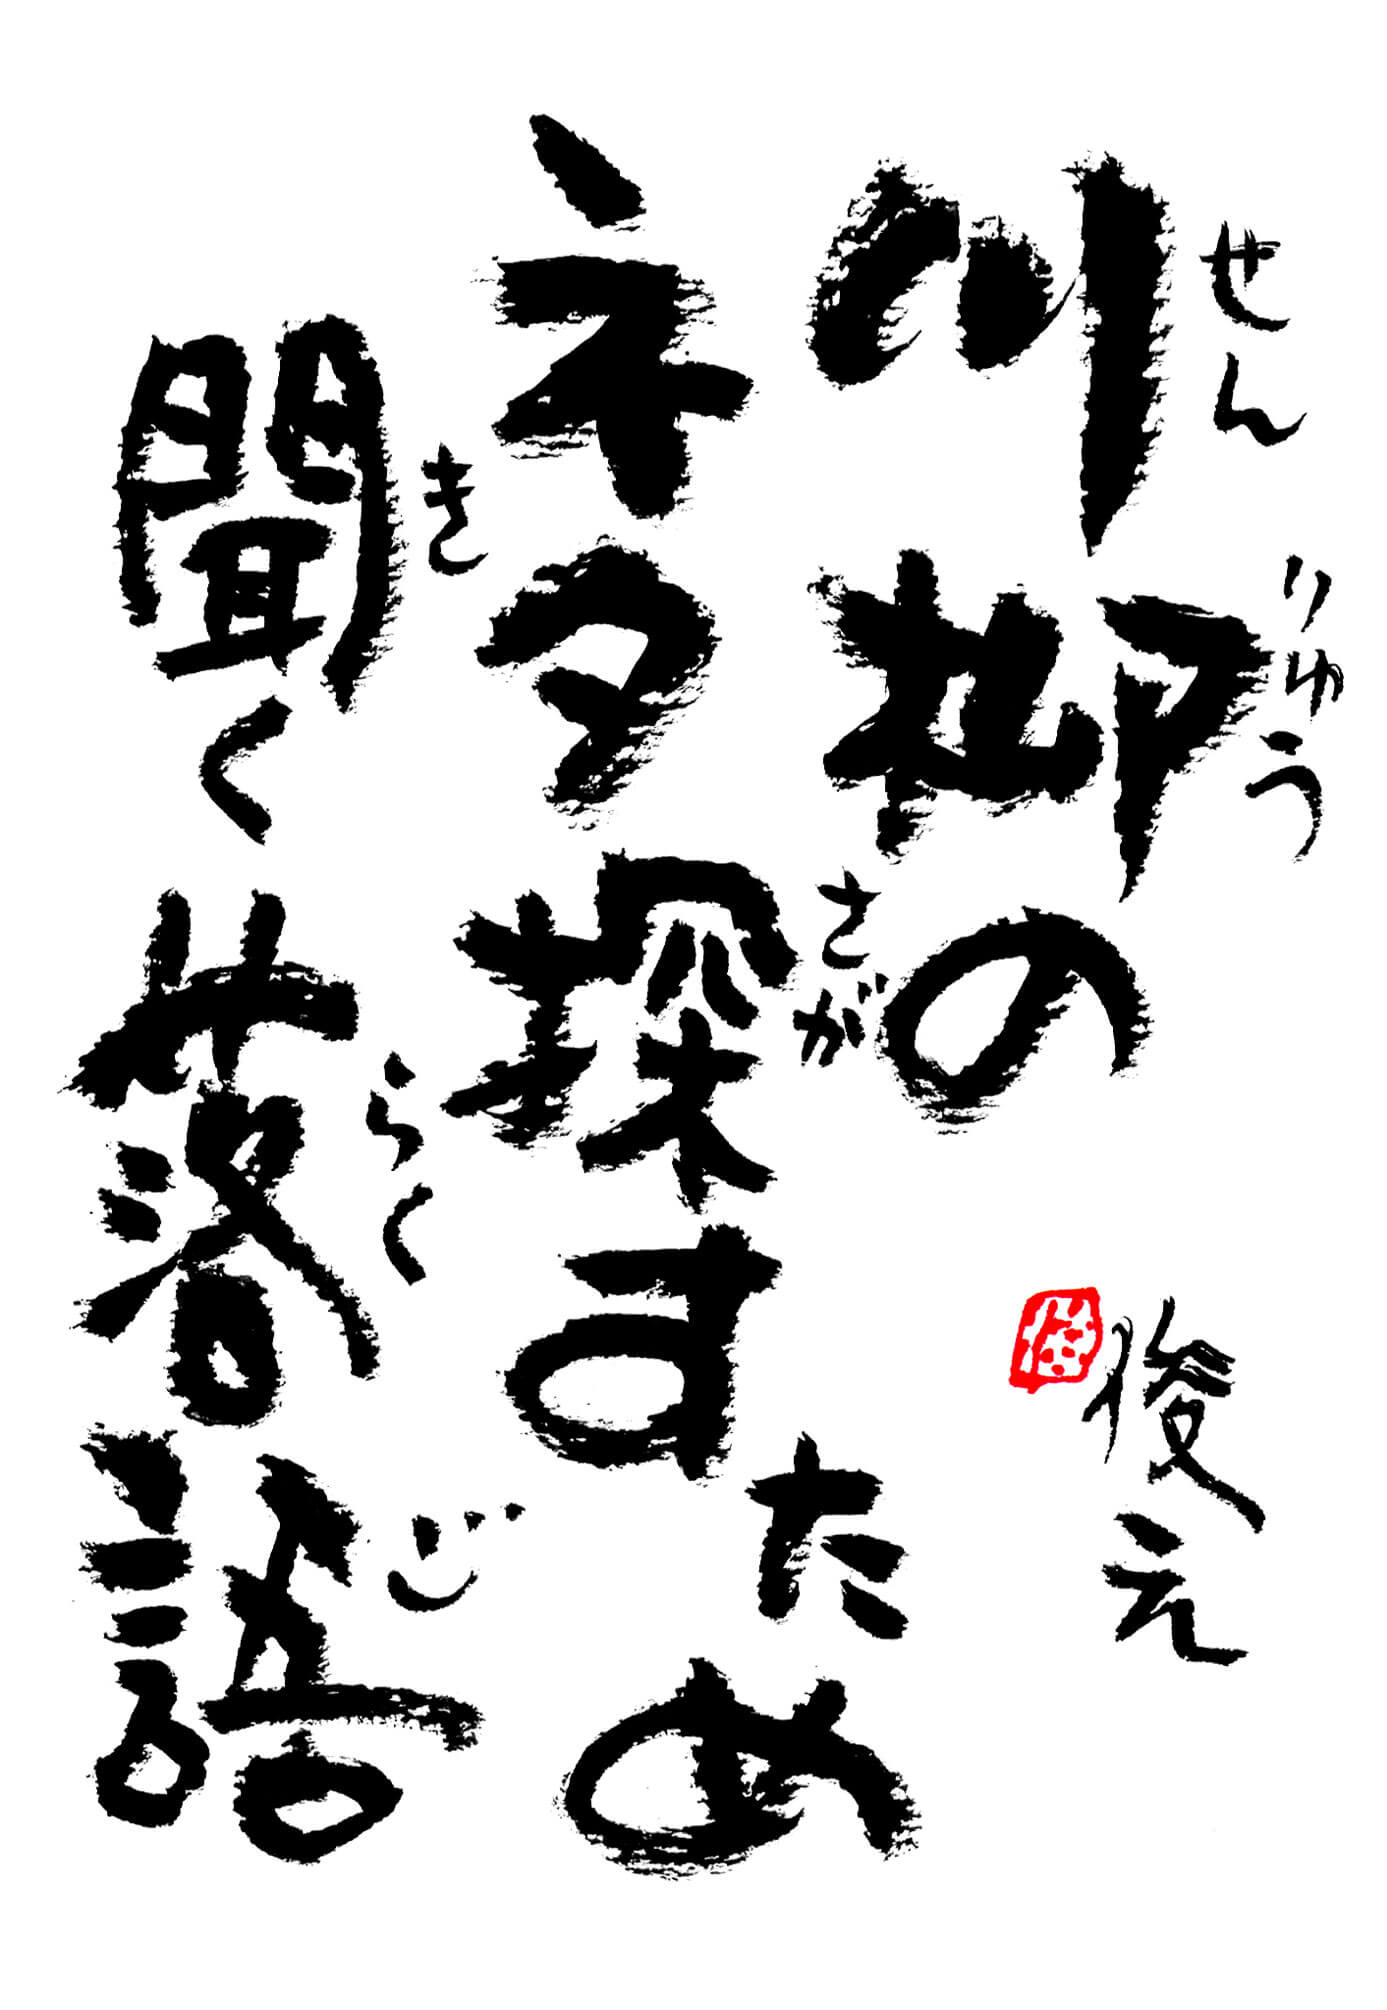 川柳の
せんりゅう
ネタ探すため
さが
聞く落語
き
らくご
俊え